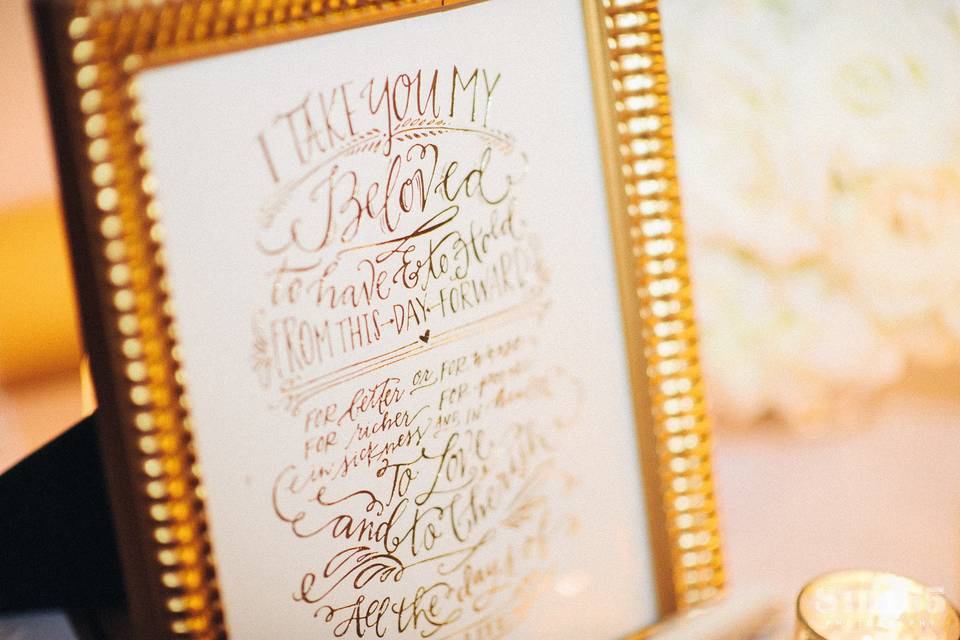 I TAKE YOU MY
Beloved
to have & to Hold
FROM THIS DAY FORWARD
FOR better or FOR worse
FOR richer FOR poorer
in sickness AND IN
To Love
and to Cherish
All the days of
LIFE
STILL55
PHOTOGRAPHY